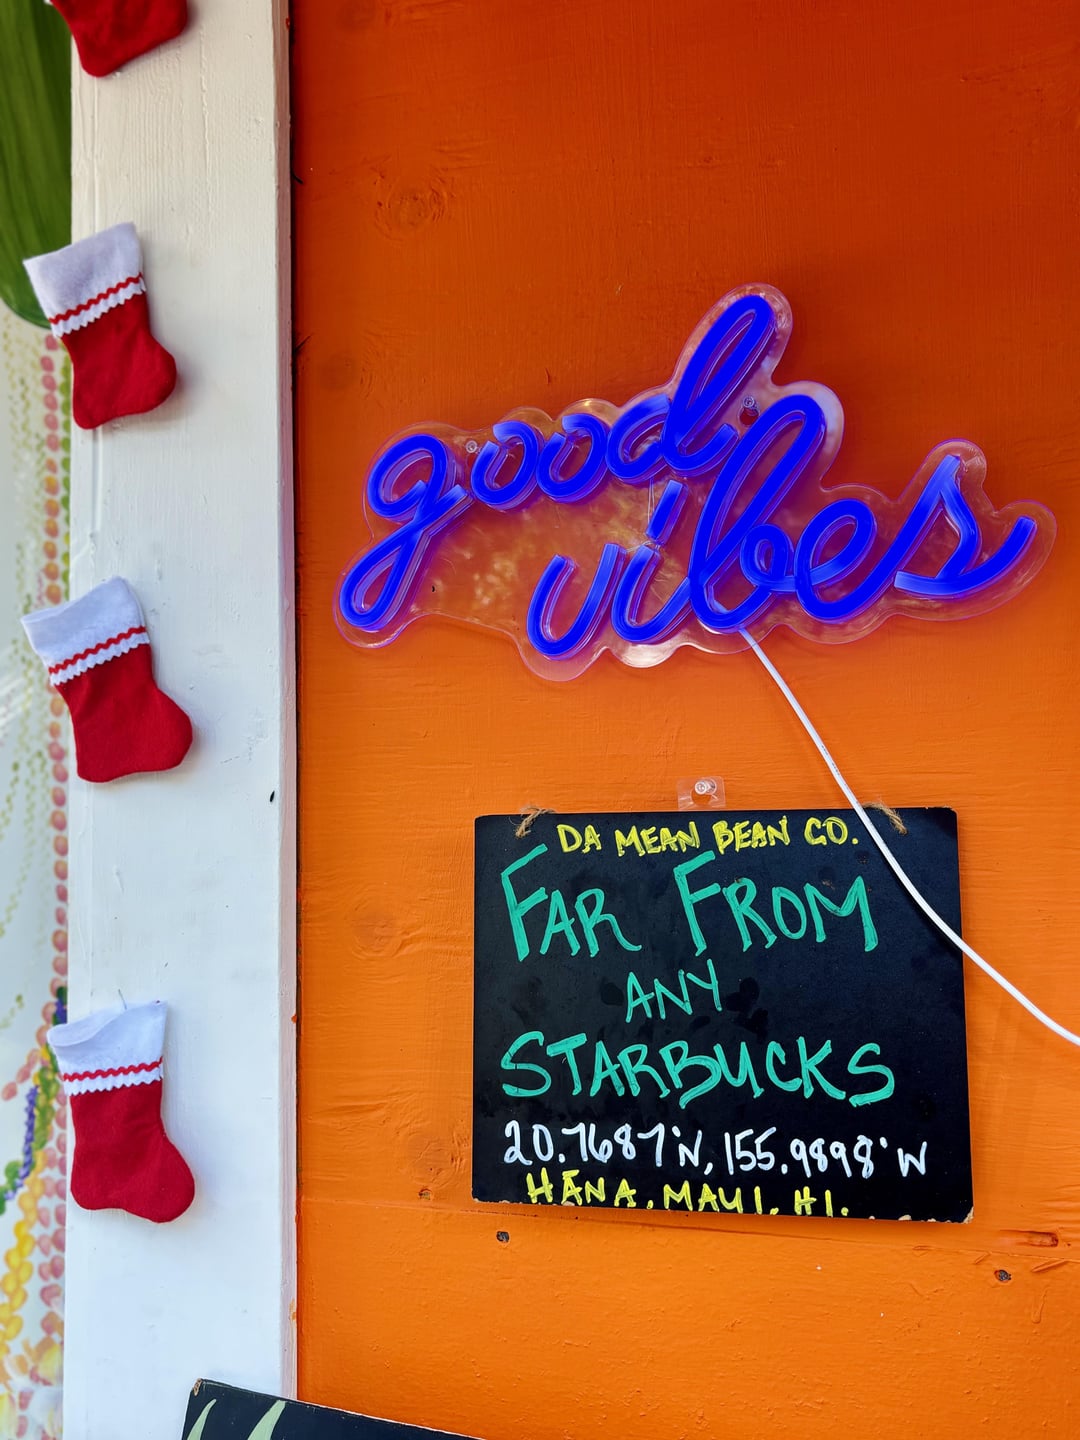 good
vibes
DA MEAN BEAN CO.
FAR FROM
ANY
STARBUCKS
20.7687°N, 155.9898°W
HĀNA, MAUI, HI.